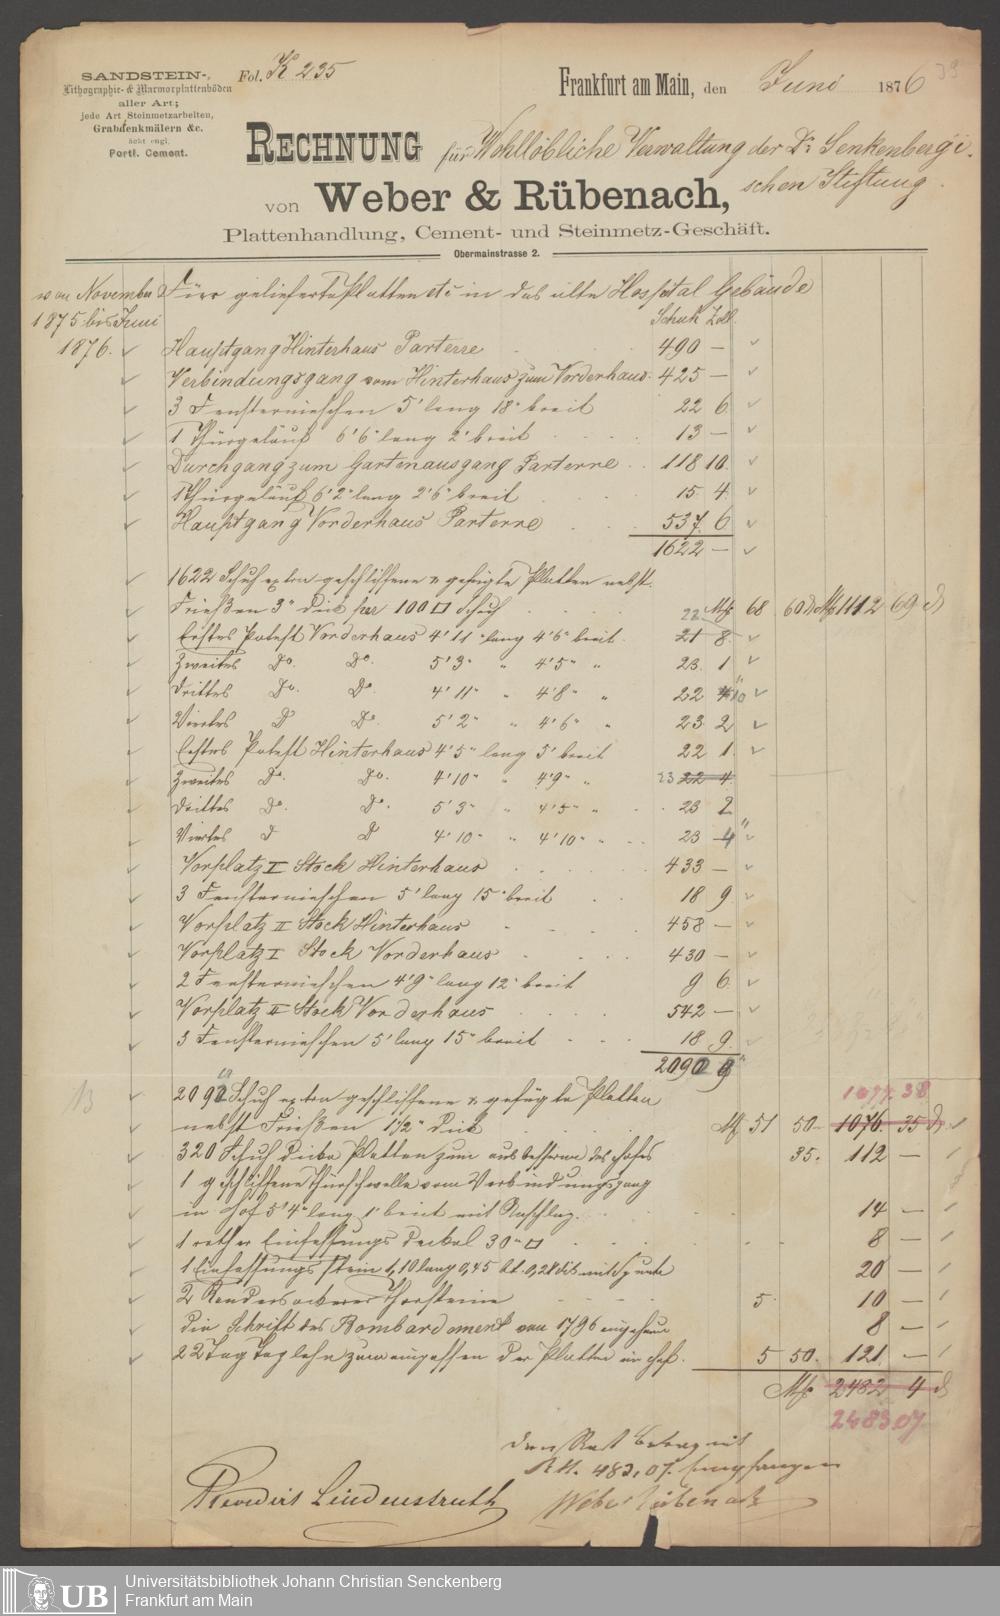 SANDSTEIN-,
Lithographie- & Marmorplattenböden
aller Art;
jede Art Steinmetzarbeiten,
Grabdenkmälern &c.
ächt engl.
Portl. Cement.
Fol. K 235
39
Frankfurt am Main, den Juni 1876
RECHNUNG für Wohllöbliche Verwaltung der Dr. Senkenbergi-
schen Stiftung.
von Weber & Rübenach,
Plattenhandlung, Cement- und Steinmetz-Geschäft.
Obermainstrasse 2.
von November
1875 bis Juni
1876.
Für gelieferte Platten etc in das alte Hospital Gebäude
Schuh Zoll.
Hauptgang Hinterhaus Parterre 490 —
Verbindungsgang vom Hinterhaus zum Vorderhaus 425 —
3 Fensternieschen 5' lang 18" breit 22 6
1 Thürgeläuf 6'6" lang 2' breit 13 —
Durchgang zum Gartenausgang Parterre 118 10
1 Thürgeläuf 6'2" lang 2'6" breit 15 4
Hauptgang Vorderhaus Parterre 537 6
1622 —
1622 Schuh extra geschliffene & gefügte Platten nebst
Frießen 3" Dick per 100 □ Schuh Mk 68 60 Mk 1112 69
Erstes Potest Vorderhaus 4'11" lang 4'6" breit 22 21 8
Zweites Do. Do. 5'3" " 4'5" " 23 1
Drittes Do. Do. 4'11" " 4'8" " 22 10
Viertes Do Do. 5'2" " 4'6" " 23 2
Erstes Potest Hinterhaus 4'5" lang 5' breit 22 1
Zweites Do. Do. 4'10" " 4'9" " 23 22 4
Drittes Do. Do. 5'3" " 4'5" " 23 2
Viertes D D 4'10" " 4'10" " 23 4
Vorplatz I Stock Hinterhaus 433 —
3 Fensternieschen 5' lang 15" breit 18 9
Vorplatz II Stock Hinterhaus 458 —
Vorplatz I Stock Vorderhaus 430 —
2 Fensternieschen 4'9" lang 12" breit 9 6
Vorplatz II Stock Vorderhaus 542 —
3 Fensternieschen 5' lang 15" breit 18 9
2092 9
1077 38
2092 Schuh extra geschliffene & gefügte Platten
nebst Frießen 1 1/2" Dick Mk 51 50 1076 35
320 Schuh Dicke Platten zum ausbessern des Hofes 35. 112 —
1 geschliffene Thürschwelle vom Verbindungsgang
im Hof 5'4" lang 1' breit mit Anschlag 14 —
1 rother Einfassungs Deckel 30" □ 8 —
1 Einfassungsstein 1,10 lang 0,45 bt. 0,28 dick mit Spunte 20 —
2 Randersackerer Thorsteine 5 10 —
die Schrift des Bombardement von 1796 8 —
22 Tag Taglohn zum einpassen der Platten im Hof. 5 50. 121 —
Mk 2482 4
2483.07
den Rest Betrag mit
RM. 483,07. empfangen
Weber Rübenach
Revidirt Lindenstruth
UB
Universitätsbibliothek Johann Christian Senckenberg
Frankfurt am Main